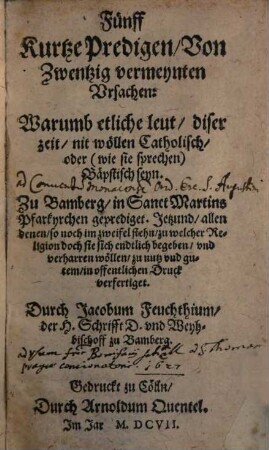 Fünff
Kurtze Predigen/ Von
Zwentzig vermeynten
Vrsachen:
Warumb etliche leut/ diser
zeit/ nit wöllen Catholisch/
oder (wie sie sprechen)
Bäpstisch seyn.
ad Conuentū Monacens. Ord. Ere. S. Augustini
Zu Bamberg/ in Sanct Martins
Pfarkyrchen geprediget. Jetzund/ allen
denen/ so noch im zweifel stehn/ zu welcher Re-
ligion doch sie sich endtlich begeben/ vnd
verharren wöllen/ zu nutz vnd gu-
tem/ in offentlichen Druck
verfertiget.
Durch Jacobum Feuchthium/
der H. Schrifft D. vnd Weyh-
bischoff zu Bamberg.
1627
Gedruckt zu Cölln/
Durch Arnoldum Quentel.
Im Jar M. DCVII.